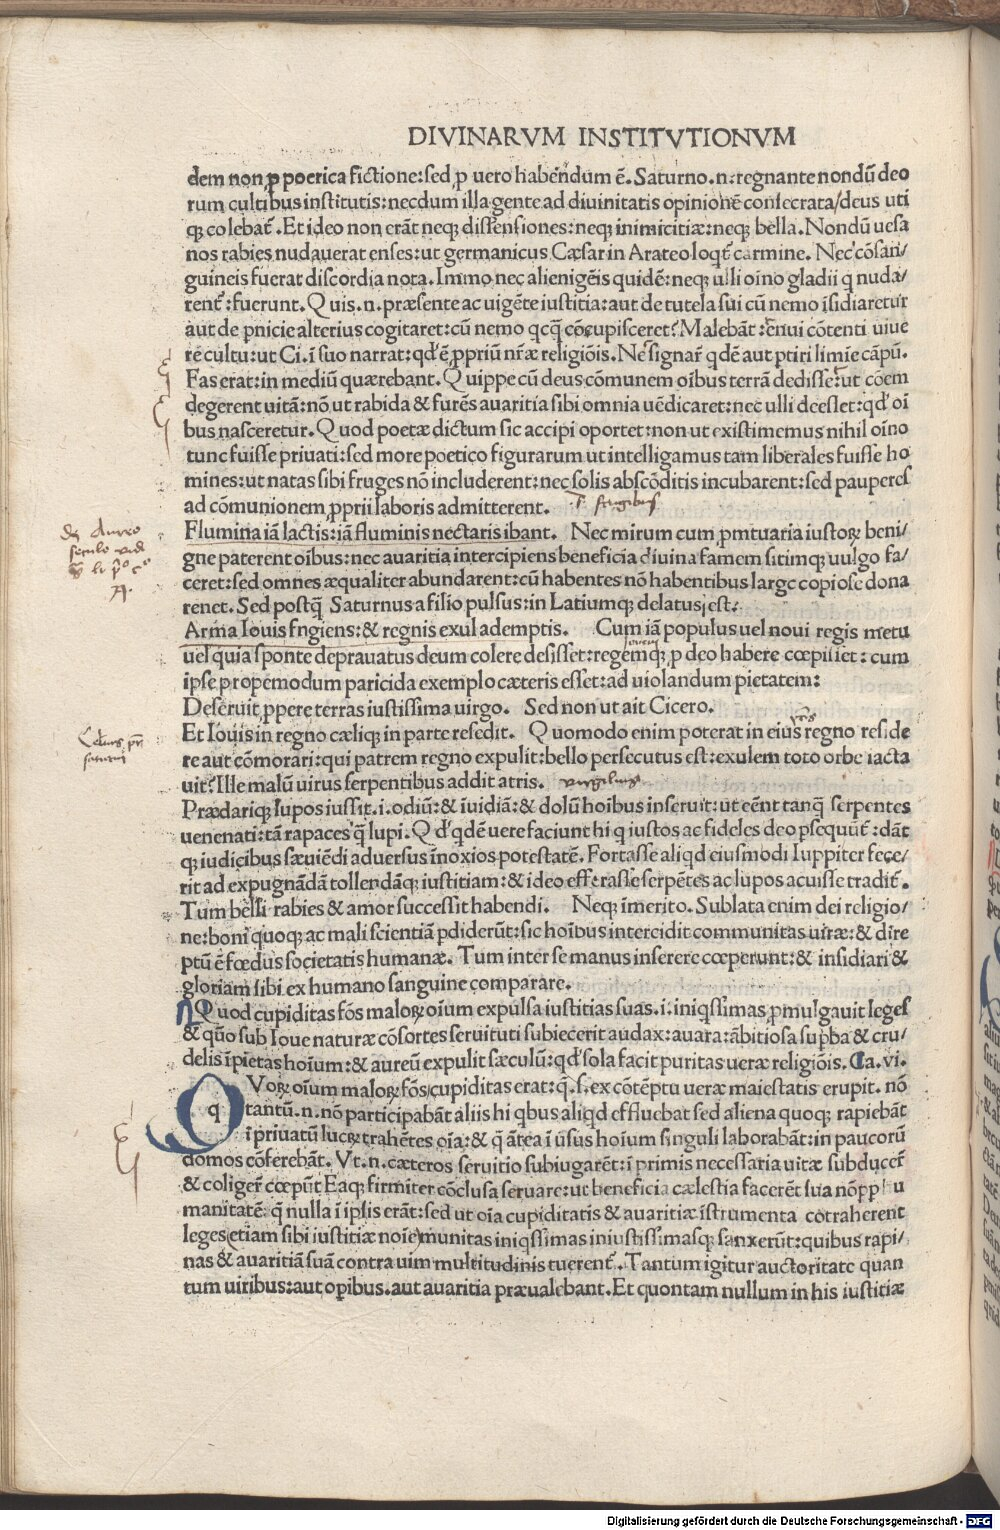 DIVINARVM INSTITVTIONVM
dem non ꝓ poetica fictione: sed ꝓ uero habendum ē. Saturno.n. regnante nondū deo
rum cultibus institutis: necdum illa gente ad diuinitatis opinionē consecrata/deus uti
qꝫ colebat̄. Et ideo non erāt neqꝫ dissensiones: neqꝫ inimicitiæ: neqꝫ bella. Nondū uesa
nos rabies nudauerat enses: ut germanicus Cæsar in Arateo loqt̄ carmine. Nec cōsan/
guineis fuerat discordia nota. Immo nec alienigēis quidē: neqꝫ ulli oīno gladii q nuda/
rent̄: fuerunt. Quis.n. præsente ac uigēte iustitia: aut de tutela sui cū nemo īsidiaretur
aut de pnicie alterius cogitaret: cū nemo qcq̄ cōcupisceret? Malebāt: exiui cōtenti uiue
re cultu: ut Ci. ī suo narrat: qd' ē ꝓpriū nr̄æ religiōis. Ne signar̄ qdē aut ꝑtiri limīe cāpū.
Fas erat: in mediū quærebant. Quippe cū deus cōmunem oībus terrā dedisset: ut cōem
degerent uitā: nō ut rabida & furēs auaritia sibi omnia uēdicaret: nec ulli deesset: qd' oī
bus nasceretur. Quod poetæ dictum sic accipi oportet: non ut existimemus nihil oīno
tunc fuisse priuati: sed more poetico figurarum ut intelligamus tam liberales fuisse ho
mines: ut natas sibi fruges nō includerent: nec solis abscōditis incubarent: sed pauperes
ad cōmunionem ꝓprii laboris admitterent. .s. frugibus
Flumina iā lactis: iā fluminis nectaris ibant. Nec mirum cum ꝓmtuaria iustoꝝ beni/
gne paterent oībus: nec auaritia intercipiens beneficia diuina famem sitimqꝫ uulgo fa/
ceret: sed omnes æqualiter abundarent: cū habentes nō habentibus large copiose dona
renet. Sed postq̄ Saturnus a filio pulsus: in Latiumqꝫ delatus est:
Arma Iouis fngiens: & regnis exul ademptis. Cum iā populus uel noui regis metu
uel quia sponte deprauatus deum colere desisset: regemqꝫ ꝓ deo habere cœpisset: cum
ipse propemodum paricida exemplo cæteris esset: ad uiolandum pietatem:
Deseruit ꝓpere terras iustissima uirgo. Sed non ut ait Cicero.
Et Iouis in regno cæliqꝫ in parte resedit. Quomodo enim poterat in eius regno reside
re aut cōmorari: qui patrem regno expulit: bello persecutus est: exulem toto orbe iacta
uit? Ille malū uirus serpentibus addit atris. virgilius
Prædariqꝫ lupos iussit.i. odiū: & īuidiā: & dolū hoībus inseruit: ut eēnt tanq̄ serpentes
uenenati: tā rapaces q̄ lupi. Qd' qdē uere faciunt hi q iustos ac fideles deo ꝑsequūt̄: dāt
qꝫ iudicibus sæuiēdi aduersus īnoxios potestatē. Fortasse aliqd eiusmodi Iuppiter fece/
rit ad expugnādā tollendāqꝫ iustitiam: & ideo efferasse serpētes ac lupos acuisse tradit̄.
Tum belli rabies & amor successit habendi. Neqꝫ īmerito. Sublata enim dei religio/
ne: boni quoqꝫ ac mali scientiā ꝑdiderūt: sic hoībus intercidit communitas uitæ: & dire
ptū ē fœdus societatis humanæ. Tum inter se manus inserere cœperunt: & insidiari &
gloriam sibi ex humano sanguine comparare.
Quod cupiditas fōs maloꝝ oium expulsa iustitias suas.i. iniqssimas ꝓmulgauit leges
& quō sub Ioue naturæ cōsortes seruituti subiecerit audax: auara: ābitiosa supba & cru/
delis īpietas hoium: & aureū expulit sæculū: qd' sola facit puritas ueræ religiōis. Ca. vi.
QVoꝝ oīum maloꝝ fōs cupiditas erat: q̄.s. ex cōtēptu ueræ maiestatis erupit. nō
q tantū.n. nō participabāt aliis hi qbus aliqd effluebat sed aliena quoqꝫ rapiebāt
ī priuatū lucꝝ trahētes oīa: & q̄ āntea ī ūsus hoium singuli laborabāt: in paucorū
domos cōferebāt. Vt.n. cæteros seruitio subiugarēt: ī primis necessaria uitæ subducer̄
& coliger̄ cœpūt Eaqꝫ firmiter cōclusa seruare: ut beneficia cælestia facerēt sua nō ꝓp u
manitatē: q̄ nulla ī ipsis erāt: sed ut oīa cupiditatis & auaritiæ īstrumenta cotraherent
leges etiam sibi iustitiæ noīe munitas iniqssimas iniustissimasqꝫ sanxerūt: quibus rapi/
nas & auaritiā suā contra uim multitudinis tuerent̄. Tantum igitur auctoritate quan
tum uiribus: aut opibus. aut auaritia præualebant. Et quontam nullum in his iustitiæ
de Aureo
seculo
saturni
Digitalisierung gefördert durch die Deutsche Forschungsgemeinschaft - DFG